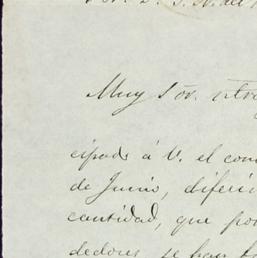 Muy Sor. ntro
cipado á V. el com
de Junio, diferi
cantidad, que po
dedores, se han